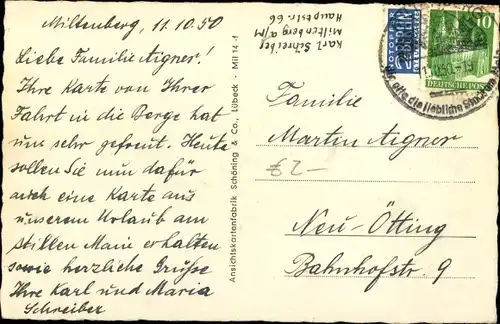 Miltenberg, 11.10.50
Liebe Familie Aigner!
Ihre Karte von Ihrer
Fahrt in die Berge hat
uns sehr gefreut. Heute
sollen Sie nun dafür
auch eine Karte aus
unserem Urlaub am
stillen Main erhalten
sowie herzliche Grüße
Ihre Karl und Maria
Schreiber
Ansichtskartenfabrik Schöning & Co., Lübeck - Mil 14
Karl Schreiber
Miltenberg a/M
Hauptstr. 66
NOTOPFER
2 BERLIN
STEUERMARKE
10
DEUTSCHE POST
die liebliche
Familie
Martin Aigner
£2-
Neu-Ötting
Bahnhofstr. 9